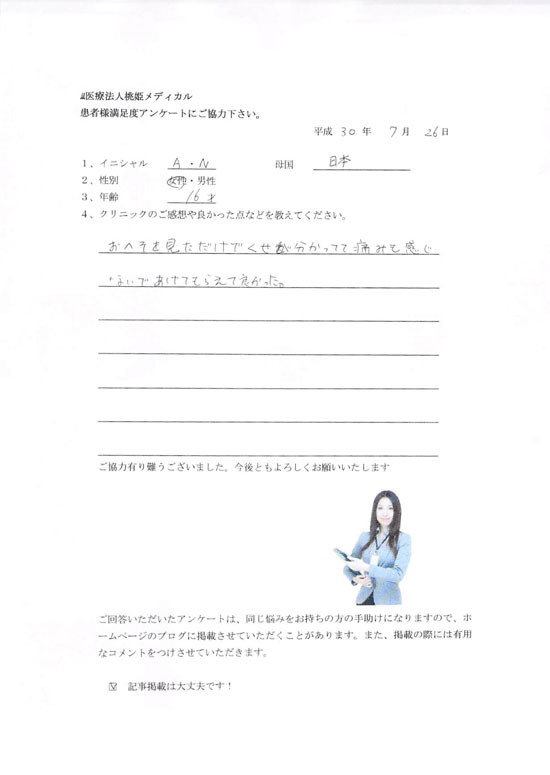 医療法人桃姫メディカル
患者様満足度アンケートにご協力下さい。
平成 30 年 7 月 26 日
1、イニシャル A・N 母国 日本
2、性別 女性・男性
3、年齢 16才
4、クリニックのご感想や良かった点などを教えてください。
おへそを見ただけでくせが分かってて痛みも感じ
ないであけてもらえて良かった。
ご協力有り難うございました。今後ともよろしくお願いいたします
ご回答いただいたアンケートは、同じ悩みをお持ちの方の手助けになりますので、ホ
ームページのブログに掲載させていただくことがあります。また、掲載の際には有用
なコメントをつけさせていただきます。
☑ 記事掲載は大丈夫です！